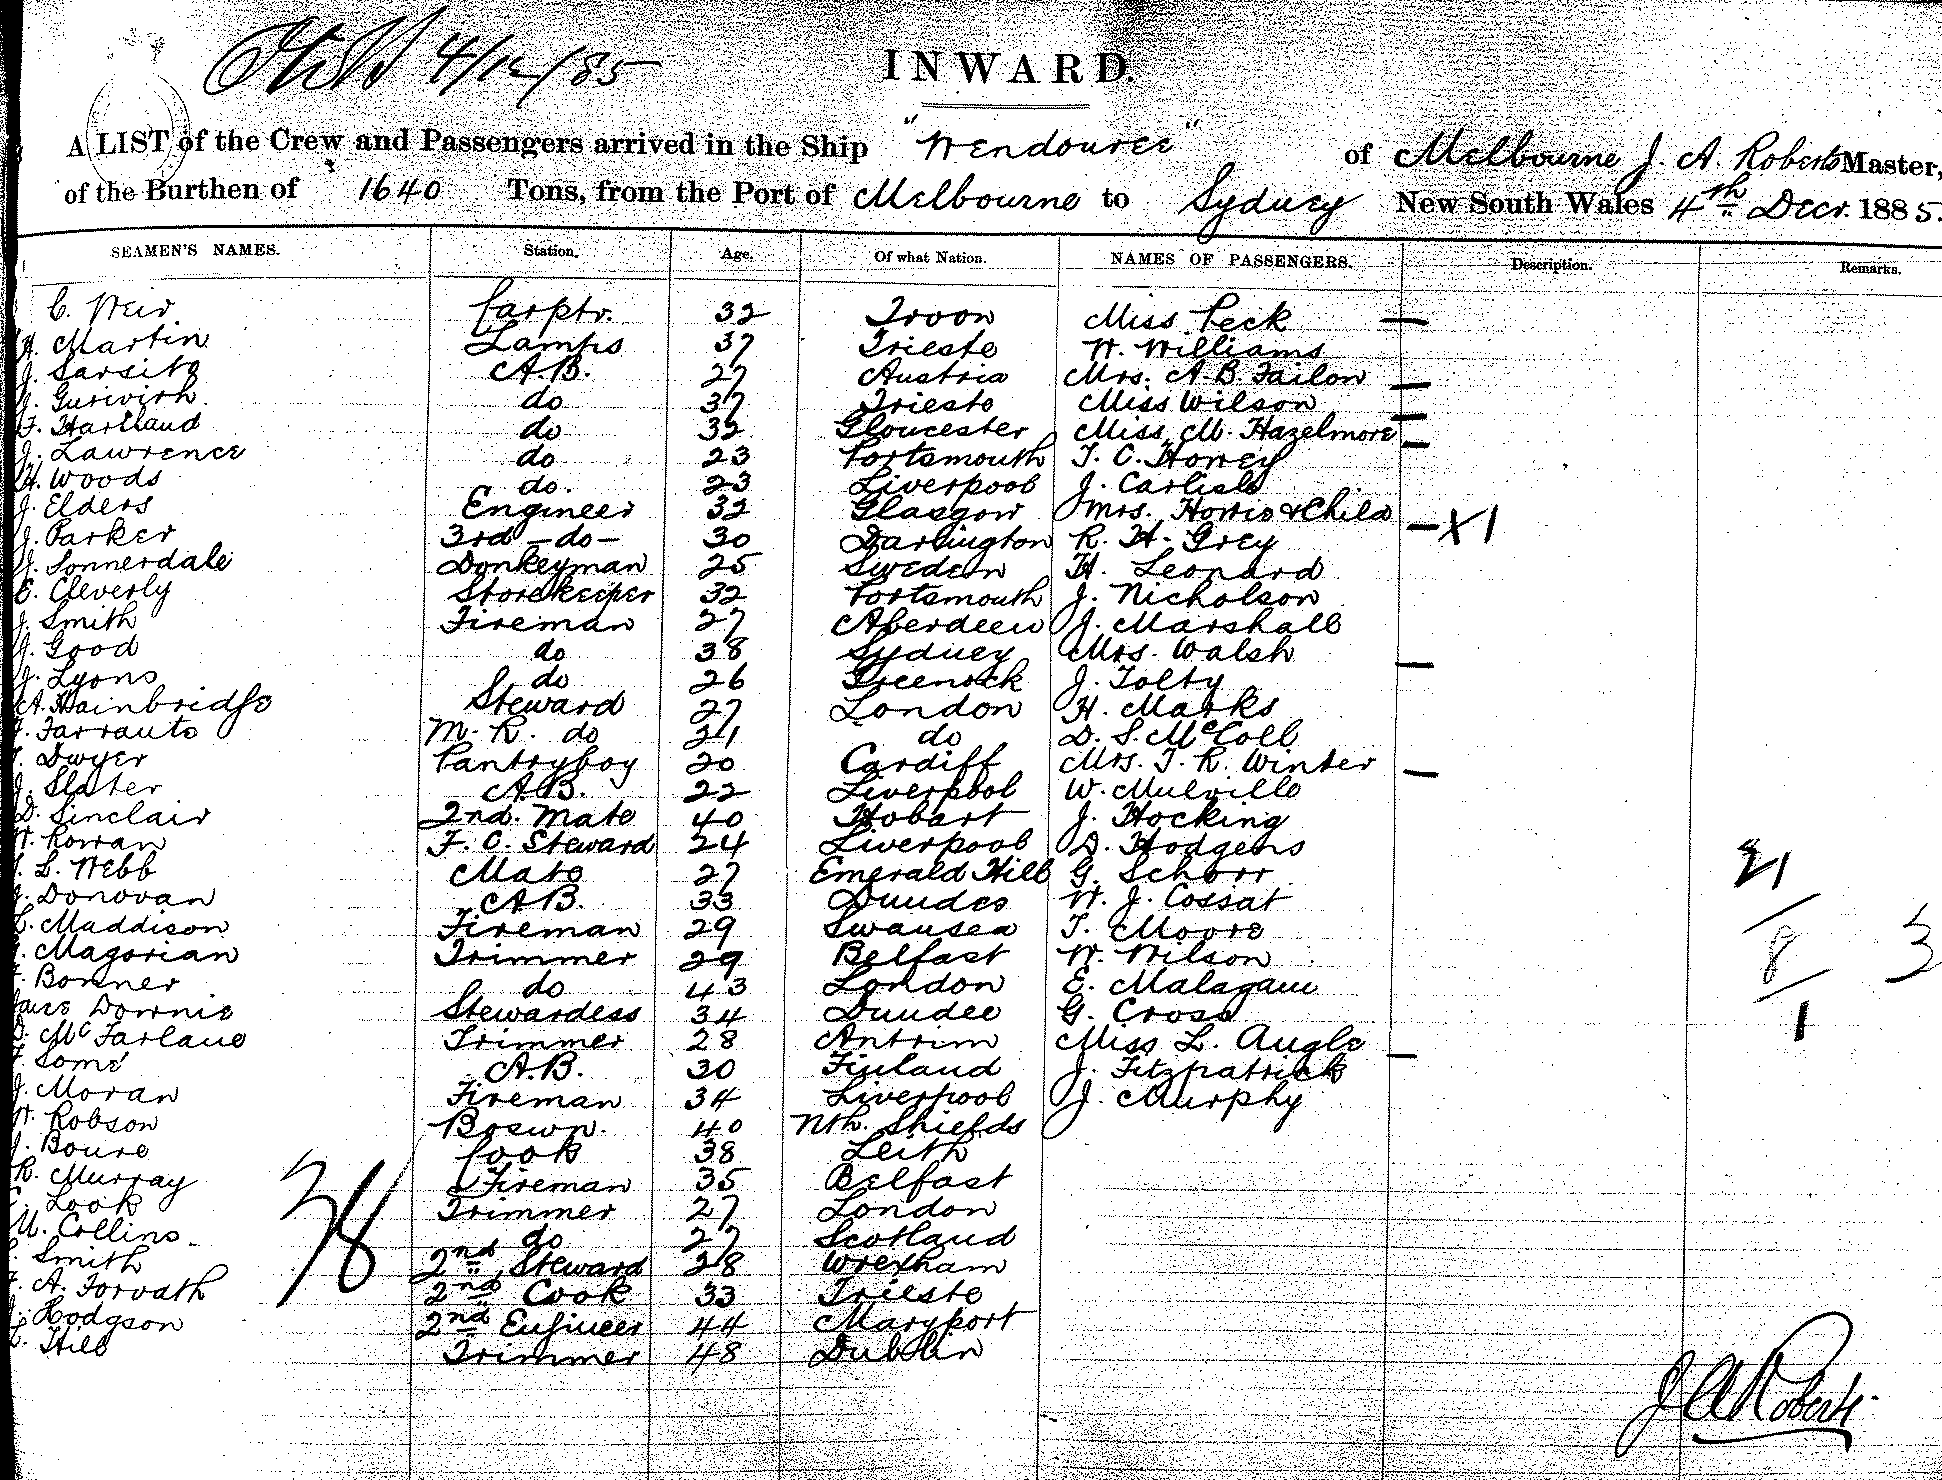 4/12/85
INWARD.
A LIST of the Crew and Passengers arrived in the Ship "Wendouree" of Melbourne J. A. Roberts Master,
of the Burthen of 1640 Tons, from the Port of Melbourne to Sydney New South Wales 4th Decr. 1885.
SEAMEN'S NAMES. Station. Age. Of what Nation. NAMES OF PASSENGERS. Description. Remarks.
C. Weir Carptr. 32 Troon Miss Peck —
Martin Lamps 37 Trieste W. Williams
J. Sarsito A.B. 27 Austria Mrs. A. B. Failon —
J. Gurivich do 37 Trieste Miss Wilson —
F. Hartland do 32 Gloucester Miss M. Hazelmore —
J. Lawrence do 23 Portsmouth T. C. Honey
H. Woods do. 23 Liverpool J. Carlisle
J. Elders Engineer 32 Glasgow Mrs. Horris & Child — X1
J. Parker 3rd -do- 30 Darlington R. H. Grey
Sonnerdale Donkeyman 25 Sweden H. Leonard
E. Cleverly Storekeeper 32 Portsmouth J. Nicholson
J. Smith Fireman 27 Aberdeen J. Marshall
J. Good do 38 Sydney Mrs. Walsh —
J. Lyons do 26 Greenock J. Tolty
A. Hainbridge Steward 27 London H. Marks
Farrauto M. R. do 21 do D. S. McColl
Dwyer Pantryboy 20 Cardiff Mrs. T. R. Winter —
J. Slater A.B. 22 Liverpool W. Mulville
D. Sinclair 2nd. Mate 40 Hobart J. Hocking
W. Rowan F. C. Steward 24 Liverpool D. Hodgens
L. Webb Mate 27 Emerald Hill G. Schorr 21
J. Donovan A.B. 33 Dundee W. J. Cossat
Maddison Fireman 29 Swansea T. Moore
Magorian Trimmer 29 Belfast W. Wilson 8 3
Bonner do 43 London E. Malagam
Downie Stewardess 34 Dundee G. Cross 1
McFarlane Trimmer 28 Antrim Miss L. Augle —
Somé A.B. 30 Finland J. Fitzpatrick
J. Moran Fireman 34 Liverpool J. Murphy
W. Robson Boswn. 40 Nth. Shields
J. Boure Cook 38 Leith
R. Murray Fireman 35 Belfast
Look Trimmer 27 London
M. Collins do 27 Scotland
Smith 2nd Steward 28 Wrexham
A. Forvath 2nd Cook 33 Trieste
Hodgson 2nd Engineer 44 Maryport
Hill Trimmer 48 Dublin
J A Roberts